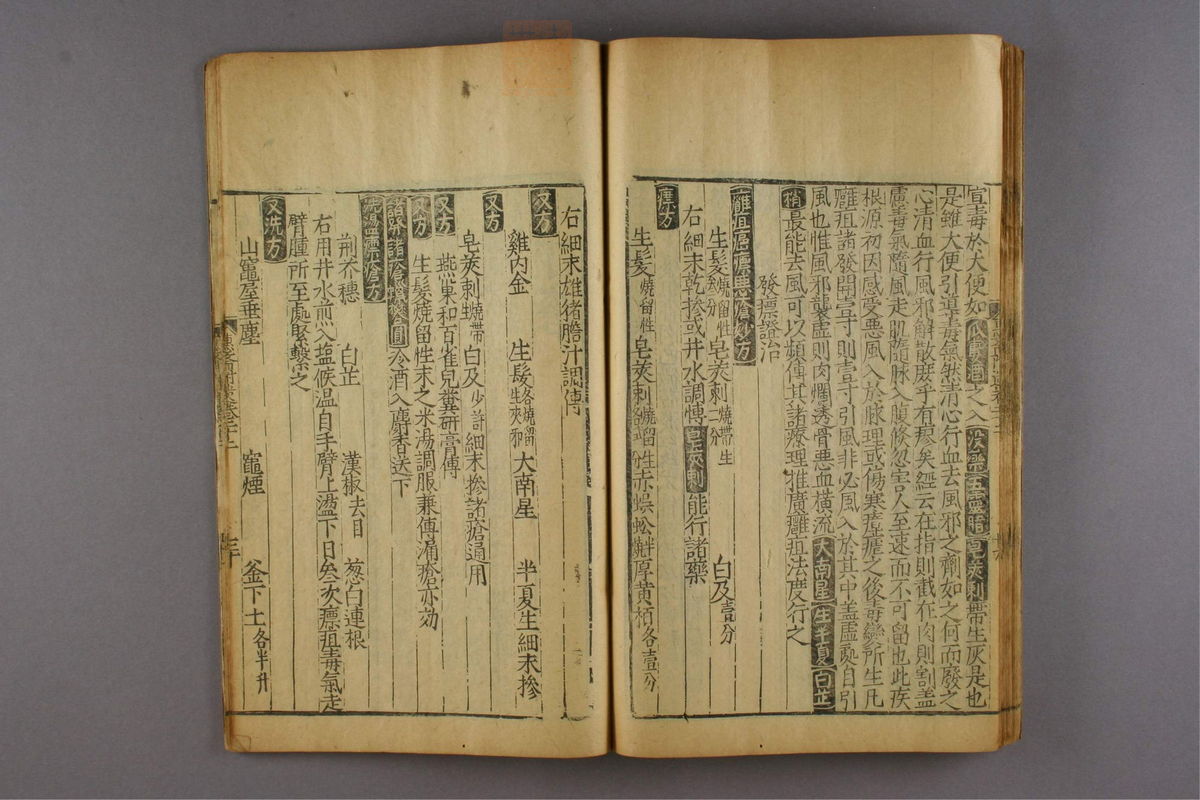 宣毒於大便如瓜蔞酒之入沒藥五靈脂皂莢刺帶生灰是也
是雖大便引導毒氣然清心行血去風邪之劑如之何而廢之
心清血行風邪解散庶乎有瘳矣經云在指則截在肉則割蓋
慮毒氣隨風走肌隨脉入腹倏忽害人至速而不可留也此疾
根源初因感受惡風入於脉理或傷寒瘧之後毒變所生凡
癰疽諸發開壹寸則壹寸引風非必風入於其中蓋虛處自引
風也惟風邪襲虛則肉爛透骨惡血橫流大南星生半夏白芷
梢最能去風可以頻傅其諸療理推廣癰疽法度行之
發瘭證治
癰疽瘭惡瘡妙方
生髮燒留性分 皂莢刺燒帶生分 白及壹分
右細末乾摻或井水調傅皂莢刺能行諸藥
瘭方
生髮燒留性 皂莢刺燒留性 赤蜈蚣 厚黃栢各壹分
右細末雄猪膽汁調傅
又方
雞內金 生髮各燒留性夾邪 大南星 半夏生細末摻
又方
皂莢刺燒帶生 白及少許細末摻諸瘡通用
又方
燕巢和百雀兒糞研膏傅
又方
生髮燒留性末之米湯調服兼傅漏瘡亦効
諸惡瘡圓冷酒入麝香送下
洗瘭瘡方
荊芥穗 白芷 漢椒去目 葱白連根
右用井水煎入鹽候溫自手臂上盪下日叁次瘭疽毒氣走
臂腫所至處緊繫之
又洗方
山竈屋垂塵 竈煙 釜下土各半升